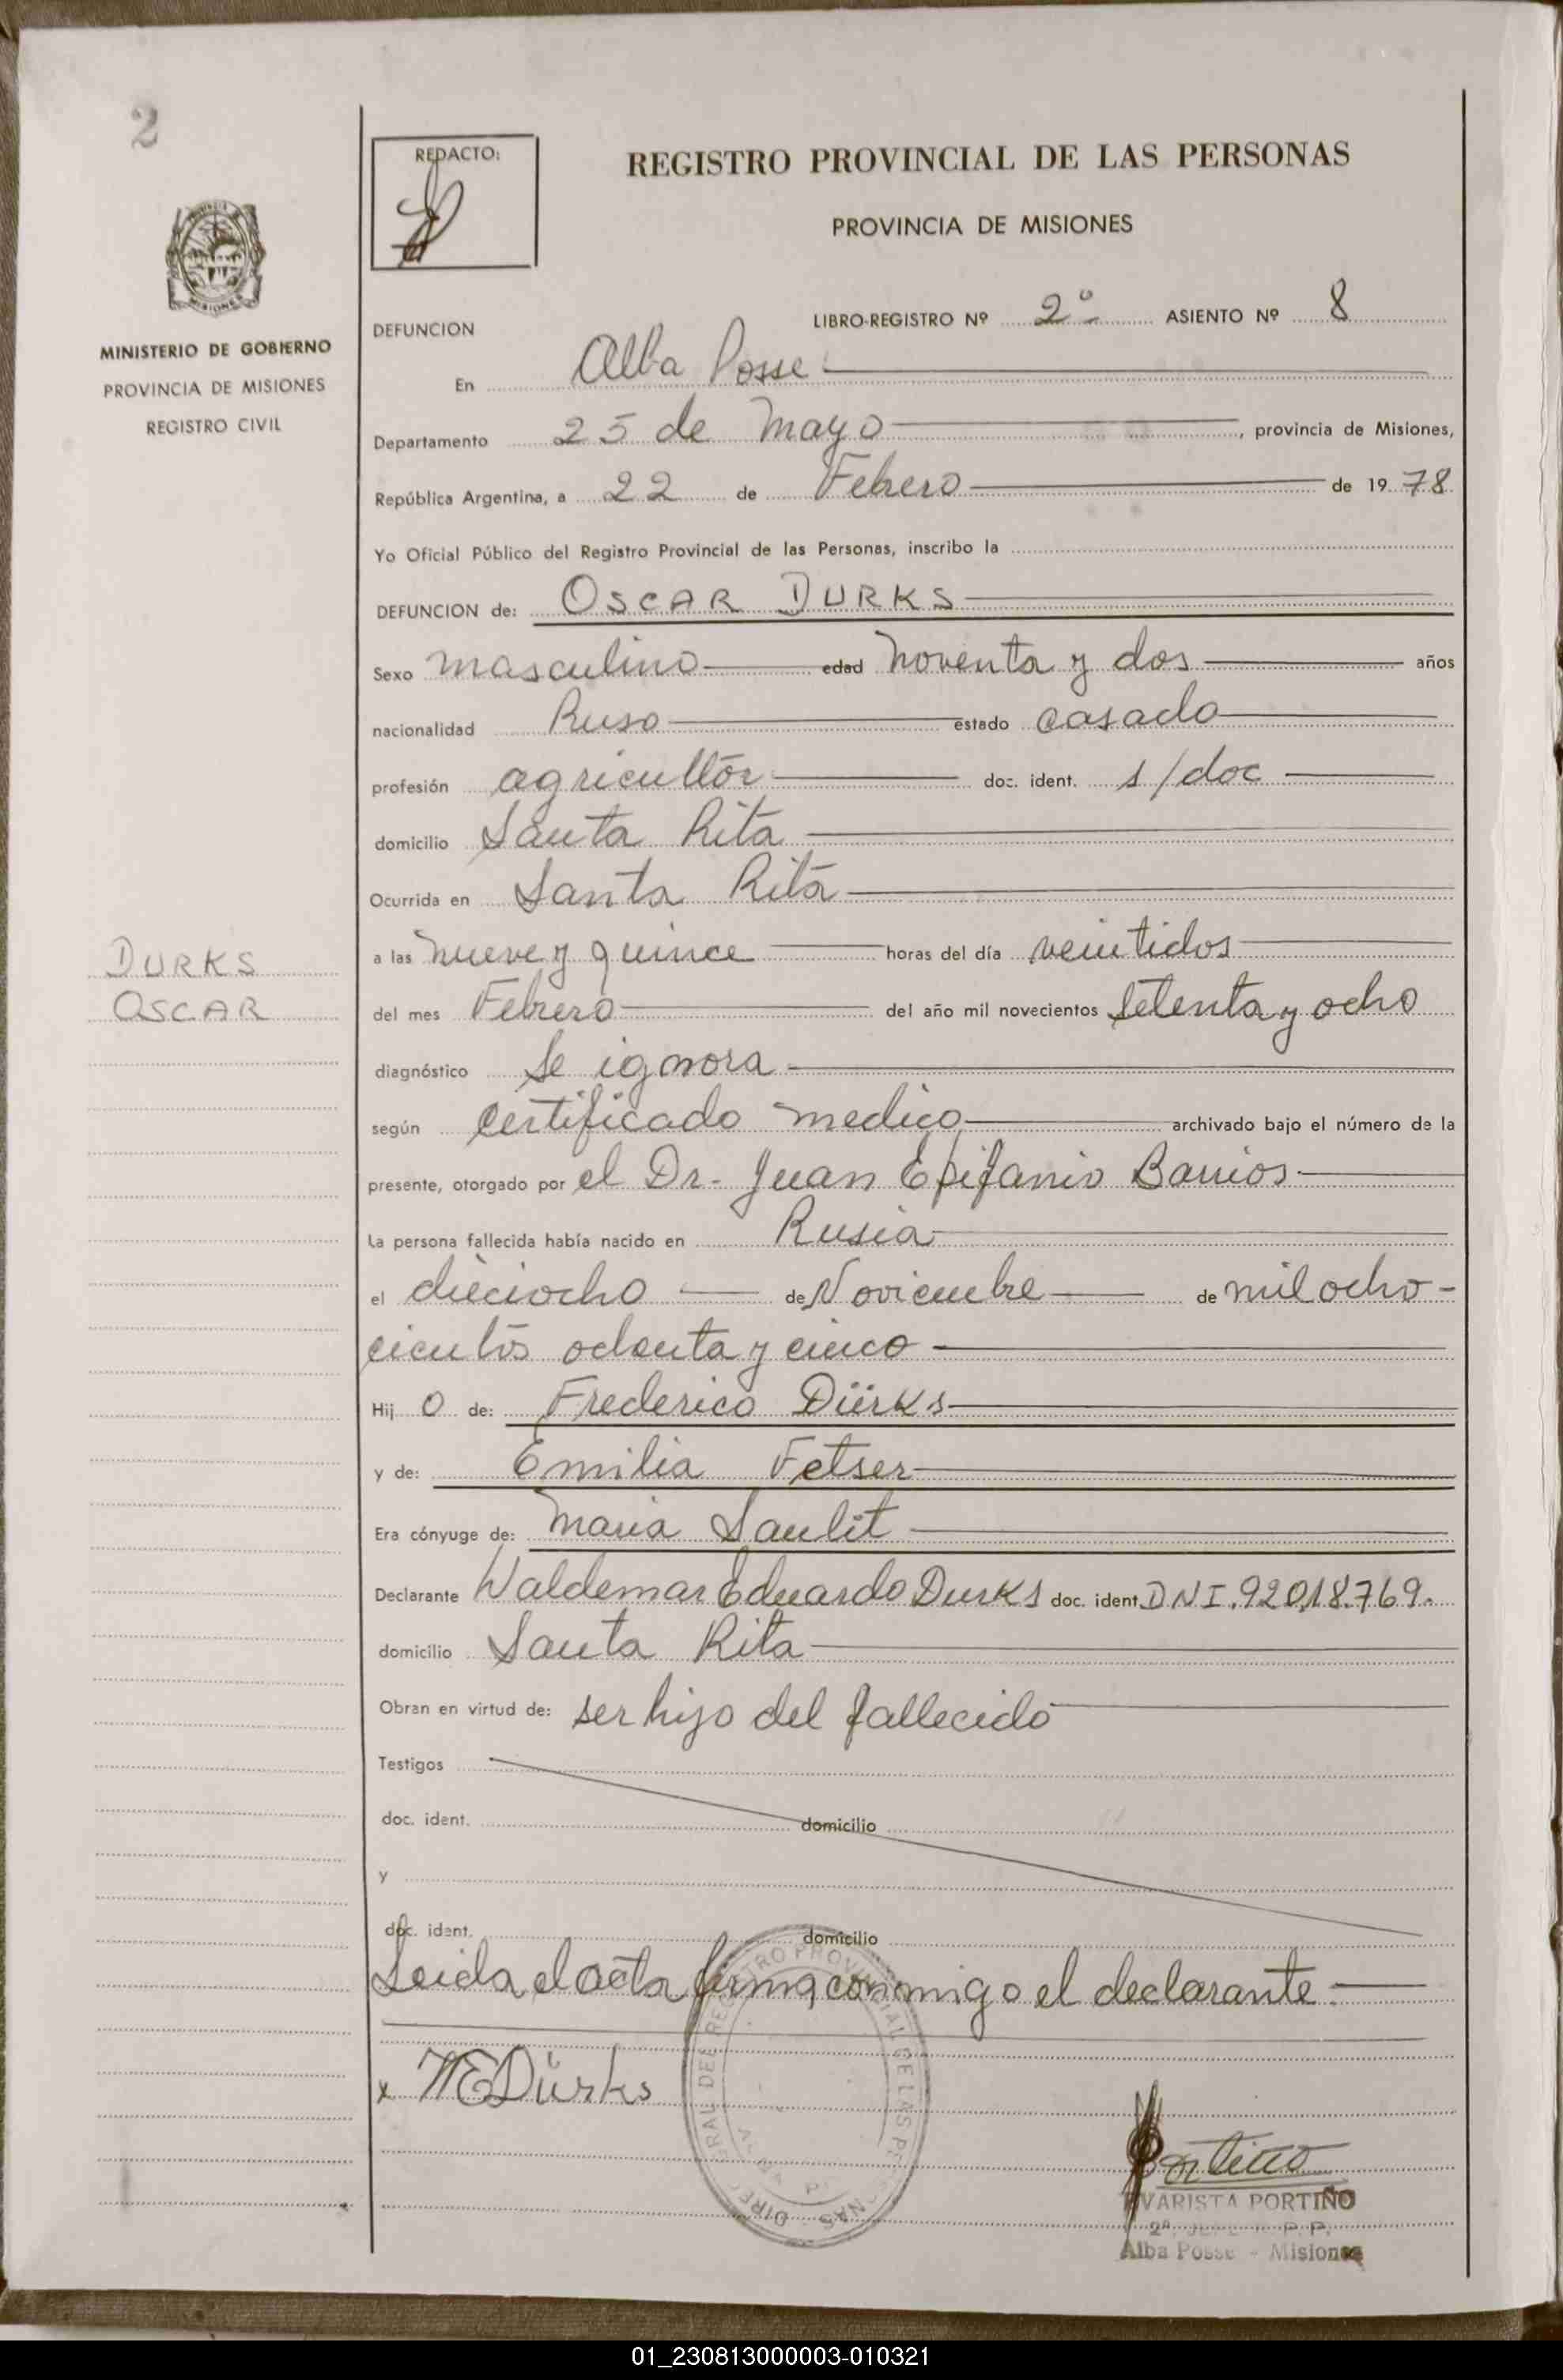 2
REDACTO:
REGISTRO PROVINCIAL DE LAS PERSONAS
PROVINCIA DE MISIONES
MISIONES
MINISTERIO DE GOBIERNO
PROVINCIA DE MISIONES
REGISTRO CIVIL
DEFUNCION LIBRO-REGISTRO Nº 2º ASIENTO Nº 8
En Alba Posse
Departamento 25 de Mayo, provincia de Misiones,
República Argentina, a 22 de Febrero de 1978
Yo Oficial Público del Registro Provincial de las Personas, inscribo la
DEFUNCION de: OSCAR DURKS
Sexo masculino edad noventa y dos años
nacionalidad Ruso estado casado
profesión agricultor doc. ident. s/doc
domicilio Santa Rita
Ocurrida en Santa Rita
DURKS
OSCAR
a las nueve y quince horas del día veintidos
del mes Febrero del año mil novecientos setenta y ocho
diagnóstico Se ignora
según certificado medico archivado bajo el número de la
presente, otorgado por el Dr. Juan Epifanio Barrios
La persona fallecida había nacido en Rusia
el dieciocho de Noviembre de mil ocho-
cientos ochenta y cinco
Hij o de: Frederico Dürks
y de: Emilia Fetser
Era cónyuge de: Maria Saulit
Declarante Waldemar Eduardo Durks doc. ident. DNI. 92.018.769.
domicilio Santa Rita
Obran en virtud de: ser hijo del fallecido
Testigos
doc. ident. domicilio
y
doc. ident. domicilio
Leida el acta firma conmigo el declarante.
x WEDürks
Portiño
EVARISTA PORTIÑO
Alba Posse - Misiones
01_230813000003-010321